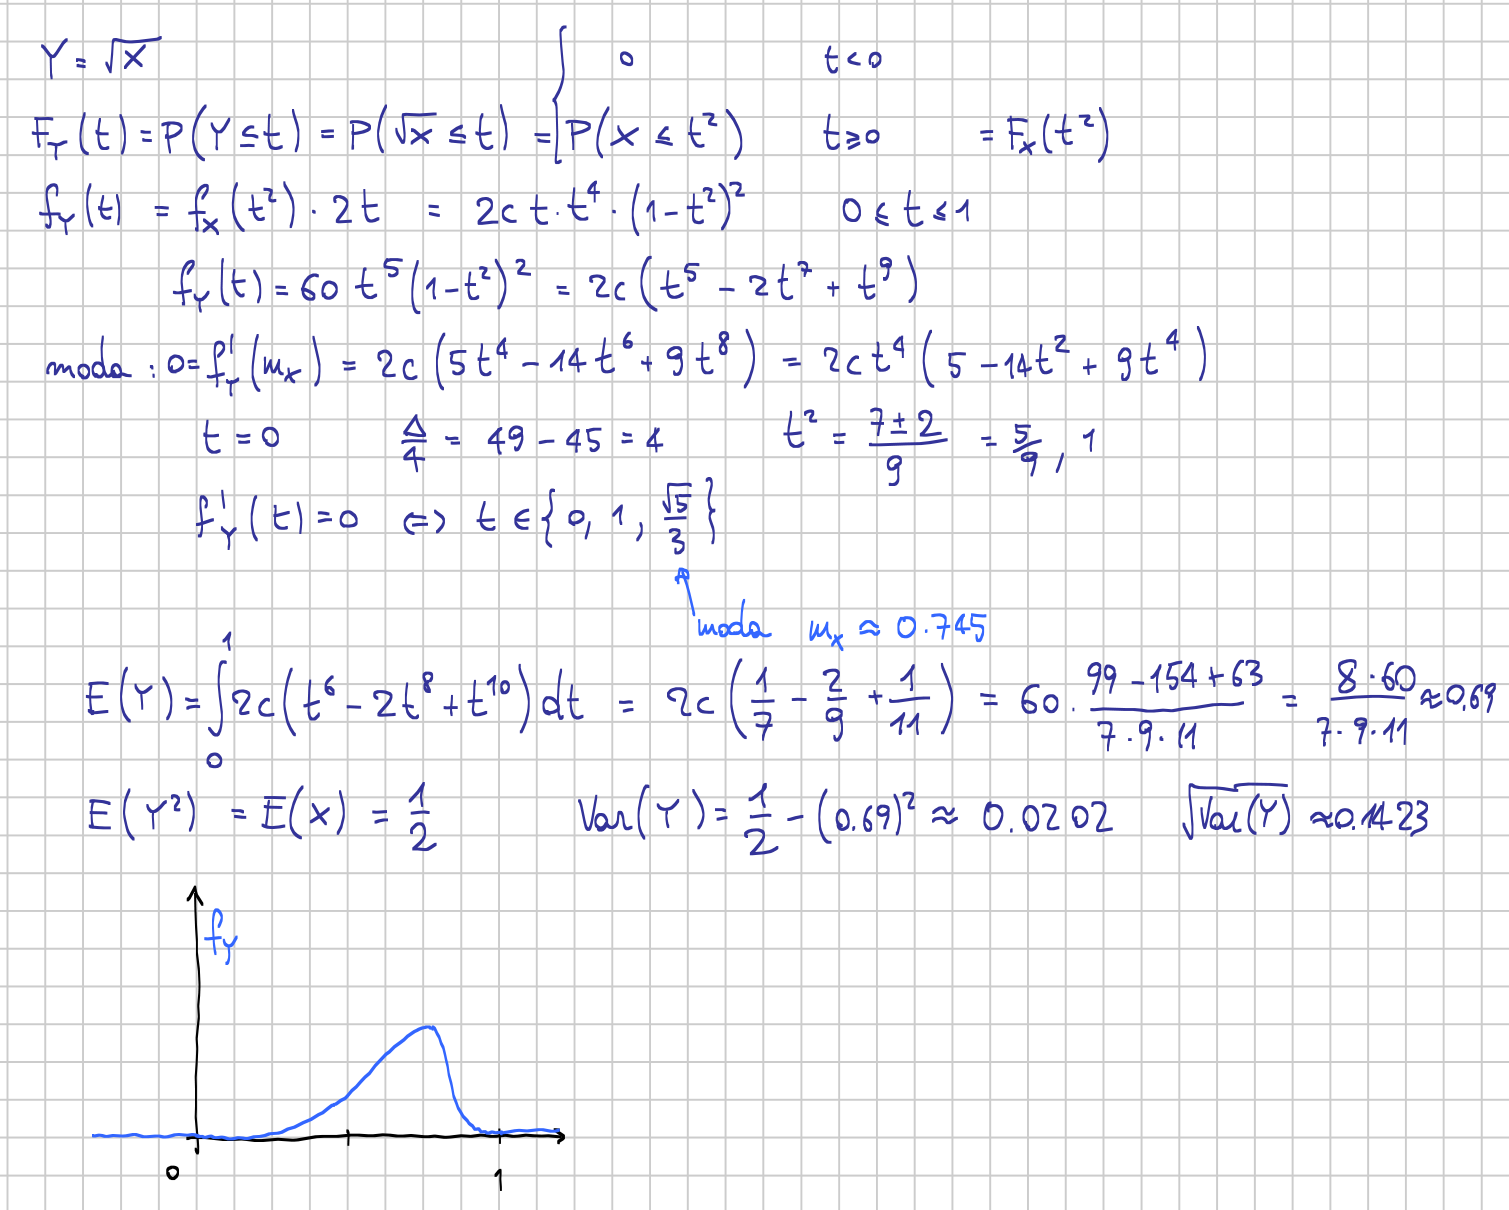 Y = √x
F_Y(t) = P(Y ≤ t) = P(√x ≤ t) = { 0 t < 0
P(X ≤ t²) t ≥ 0 = F_x(t²)
f_Y(t) = f_x(t²) · 2t = 2c t · t⁴ · (1-t²)² 0 ≤ t ≤ 1
f_Y(t) = 60 t⁵(1-t²)² = 2c(t⁵ - 2t⁷ + t⁹)
moda : 0 = f'_Y(m_x) = 2c(5t⁴ - 14t⁶ + 9t⁸) = 2c t⁴(5 - 14t² + 9t⁴)
t = 0 Δ/4 = 49 - 45 = 4 t² = (7 ± 2)/9 = 5/9, 1
f'_Y(t) = 0 ⇔ t ∈ {0, 1, √5/3}
moda m_x ≈ 0.745
E(Y) = ∫₀¹ 2c(t⁶ - 2t⁸ + t¹⁰) dt = 2c(1/7 - 2/9 + 1/11) = 60 · (99 - 154 + 63)/(7·9·11) = (8·60)/(7·9·11) ≈ 0.69
E(Y²) = E(X) = 1/2 Var(Y) = 1/2 - (0.69)² ≈ 0.0202 √Var(Y) ≈ 0.1423
f_Y
0 1